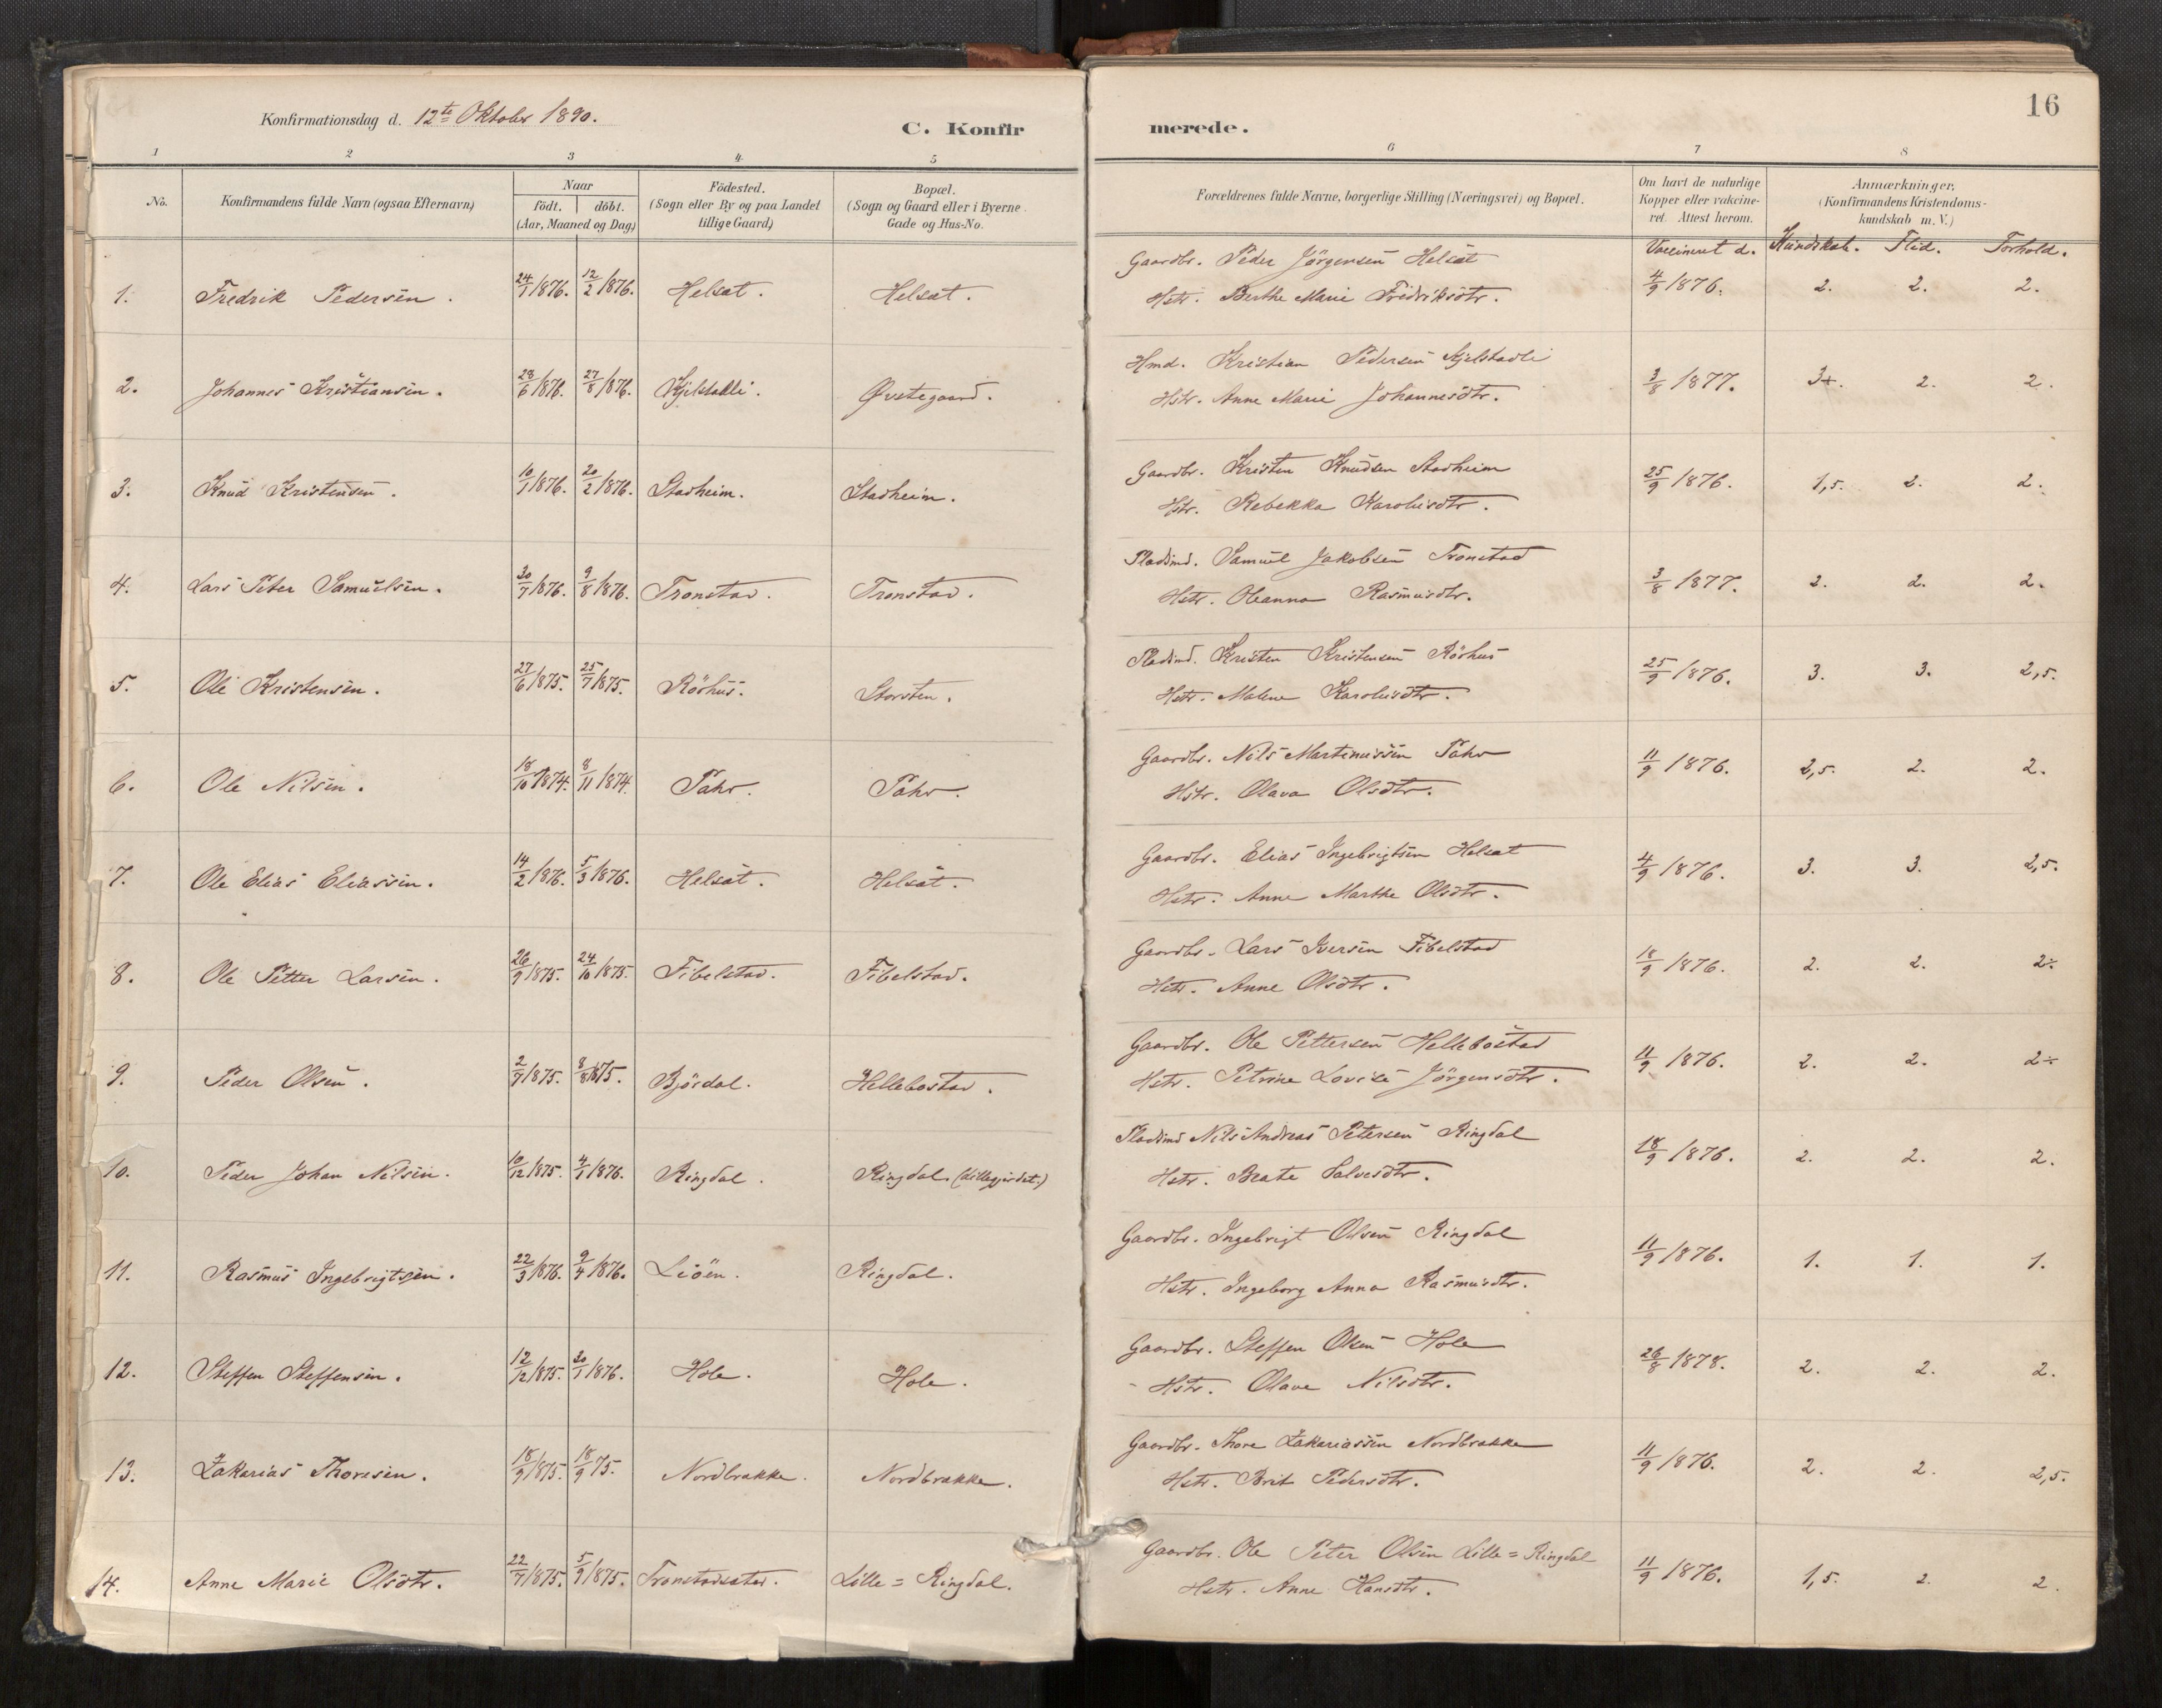 16
Konfirmationsdag d. 12te Oktober 1890.
C. Konfirmerede.
1 2 3 4 5 6 7 8
No. Konfirmandens fulde Navn (ogsaa Efternavn) Naar født. døbt. (Aar, Maaned og Dag) Födested. (Sogn eller By og paa Landet tillige Gaard) Bopæl. (Sogn og Gaard eller i Byerne Gade og Hus-No. Forældrenes fulde Navne, borgerlige Stilling (Næringsvei) og Bopæl. Om havt de naturlige Kopper eller vakcineret. Attest herom. Anmærkninger, (Konfirmandens Kristendomskundskab m. V.)
Vaccineret d. Kundskab. Flid. Forhold.
1. Fredrik Pedersen. 24/1 1876. 12/2 1876. Helsæt. Helsæt. Gaardbr. Peder Jörgensen Helsæt 4/9 1876. 2. 2. 2.
Hstr. Berthe Marie Fredriksdtr.
2. Johannes Kristiansen. 28/6 1876. 27/8 1876. Kjelstadli. Øvstegaard. Hmd. Kristian Pedersen Kjelstadli 3/8 1877. 3+. 2. 2.
Hstr. Anne Marie Johannesdtr.
3. Knud Kristensen. 10/1 1876. 20/2 1876. Stadheim. Stadheim. Gaardbr. Kristen Knudsen Stadheim 25/9 1876. 1,5. 2. 2.
Hstr. Rebekka Karolusdtr.
4. Lars Peter Samuelsen. 30/7 1876. 9/8 1876. Tronstad. Tronstad. Pladsmd. Samuel Jakobsen Tronstad 3/8 1877. 2. 2. 2.
Hstr. Oleanna Rasmusdtr.
5. Ole Kristensen. 27/6 1875. 25/7 1875. Röshus. Storsten. Pladsmd. Kristen Kristensen Röshus 25/9 1876. 3. 3. 2,5.
Hstr. Malene Karolusdtr.
6. Ole Nilsen. 18/10 1874. 8/11 1874. Gaardbr. Nils Martinussen 11/9 1876. 2,5. 2. 2.
Hstr. Olava Olsdtr.
7. Ole Elias Eliassen. 14/2 1876. 5/3 1876. Helsæt. Helsæt. Gaardbr. Elias Ingebrigtsen Helsæt 4/9 1876. 3. 3. 2,5.
Hstr. Anne Marthe Olsdtr.
8. Ole Petter Larsen. 26/9 1875. 24/10 1875. Fibelstad. Fibelstad. Gaardbr. Lars Iversen Fibelstad 18/9 1876. 2. 2. 2÷
Hstr. Anne Olsdtr.
9. Peder Olsen. 2/7 1875. 8/8 1875. Björdal. Hellebostad. Gaardbr. Ole Pettersen Hellebostad 11/9 1876. 2. 2. 2÷
Hstr. Petrine Lovise Jörgensdtr.
10. Peder Johan Nilsen. 10/12 1875. 4/1 1876. Ringdal. Ringdal. (Lillegjerdet.) Pladsmd Nils Andreas Petersen Ringdal 18/9 1876. 2. 2. 2.
Hstr. Beate Salvesdtr.
11. Rasmus Ingebrigtsen. 22/3 1876. 9/4 1876. Liöen. Ringdal. Gaardbr. Ingebrigt Olsen Ringdal 11/9 1876. 1. 1. 1.
Hstr. Ingeborg Anna Rasmusdtr.
12. Steffen Steffensen. 12/12 1875. 30/1 1876. Hole. Hole. Gaardbr. Steffen Olsen Hole 26/8 1878. 2. 2. 2.
Hstr. Olave Nilsdtr.
13. Zakarias Thoresen. 18/9 1875. 18/9 75. Nordbrakke. Nordbrakke. Gaardbr. Thore Zakariassen Nordbrakke 11/9 1876. 2. 2. 2,5.
Hstr. Brit Pedersdtr.
14. Anne Marie Olsdtr. 22/7 1875. 5/9 1875. Tronstadsæter. Lille=Ringdal. Gaardbr. Ole Peter Olsen Lille=Ringdal 11/9 1876. 1,5. 2. 2.
Hstr. Anne Hansdtr.